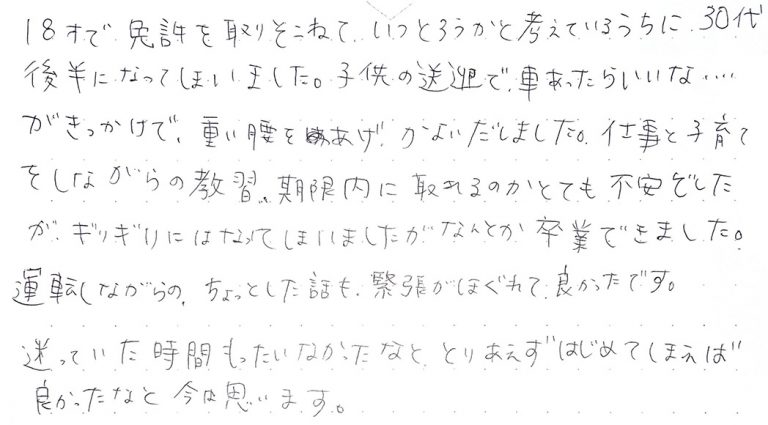 18才で免許を取りそこねて、いつとろうかと考えているうちに、30代
後半になってしまいました。子供の送迎で、車あったらいいな・・・・
がきっかけで、重い腰をあげ、かよいだしました。仕事と子育て
をしながらの教習、期限内に取れるのかとても不安でした
が、ギリギリにはなってしまいましたがなんとか卒業できました。
運転しながらの、ちょっとした話も、緊張がほぐれて、良かったです。
迷っていた時間もったいなかったなと、とりあえずはじめてしまえば
良かったなと今は思います。